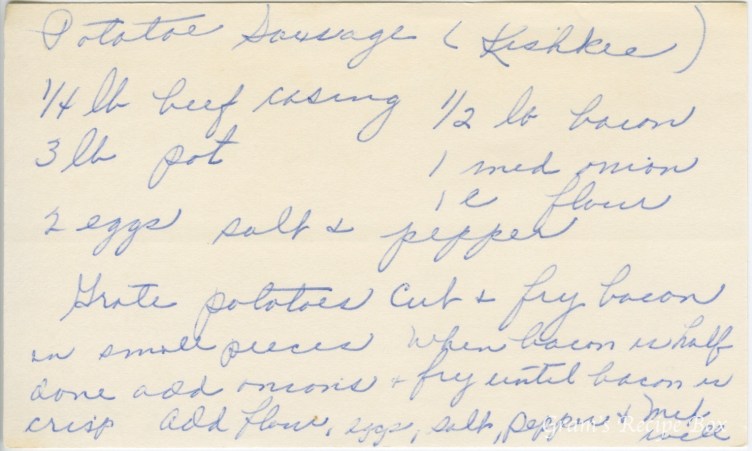 Potatoe Sausage (Kishkee)
1/4 lb beef casing 1/2 lb bacon
3 lb pot 1 med onion
1 c flour
2 eggs salt & pepper
Grate potatoes Cut & fry bacon
in small pieces When bacon is half
done add onions & fry until bacon is
crisp Add flour, eggs, salt, pepper & mix
well
Gram's Recipe Box